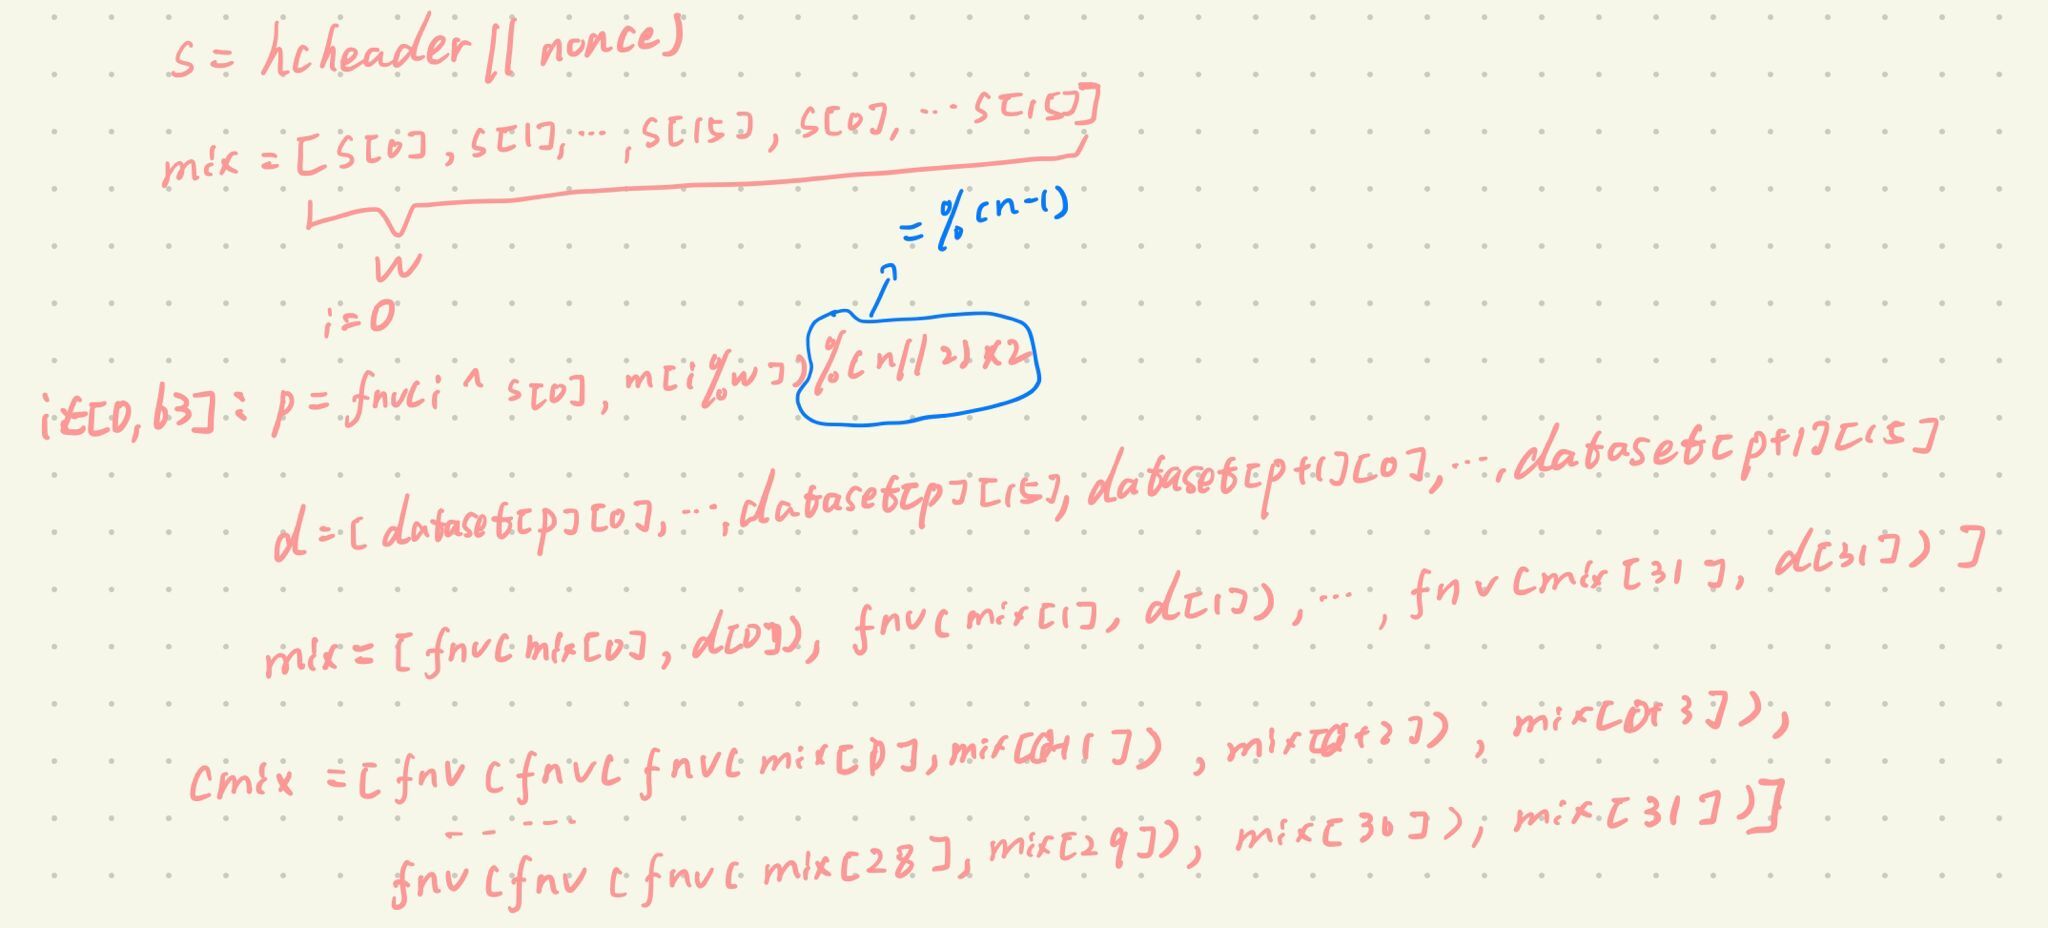 s = h(header || nonce)
mix = [s[0], s[1], ..., s[15], s[0], ... s[15]]
= % (n-1)
w
i=0
i∈[0, 63]: p = fnv(i ^ s[0], m[i%w]) % (n//2) × 2
d = [dataset[p][0], ..., dataset[p][15], dataset[p+1][0], ..., dataset[p+1][15]
mix = [fnv(mix[0], d[0]), fnv(mix[1], d[1]), ..., fnv(mix[31], d[31])]
cmix = [fnv(fnv(fnv(mix[0], mix[0+1]), mix[0+2]), mix[0+3]),
-- ---
fnv(fnv(fnv(mix[28], mix[29]), mix[30]), mix[31])]